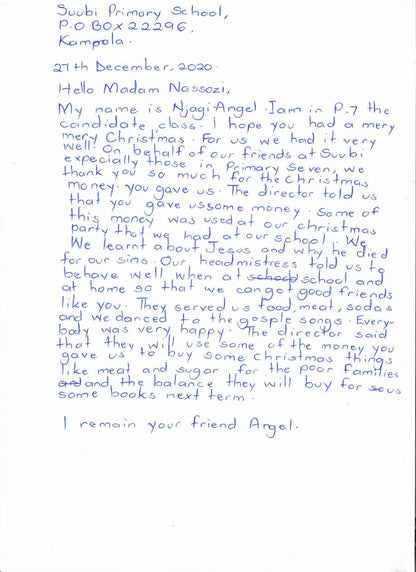 Suubi Primary School,
P.O BOX 22296,
Kampala.
27th December, 2020.
Hello Madam Nassozi,
My name is Njagi Angel. Iam in P.7 the
candidate class. I hope you had a mery
mery Christmas. For us we had it very
well. On behalf of our friends at Suubi
expecially those in Primary Seven, we
thank you so much for the Christmas
money you gave us. The director told us
that you gave ussome money. Some of
this money was used at our christmas
party that we had at our school. We
We learnt about Jesus and why he died
for our sins. Our headmistress told us to
behave well when at school school and
at home so that we canget good friends
like you. They served us food, meat, sodas
and we danced to the gosple songs. Every-
body was very happy. The director said
that they will use some of the money you
gave us to buy some Christmas things
like meat and sugar for the poor families
and and, the balance they will buy for us
some books next term.
I remain your friend Angel.